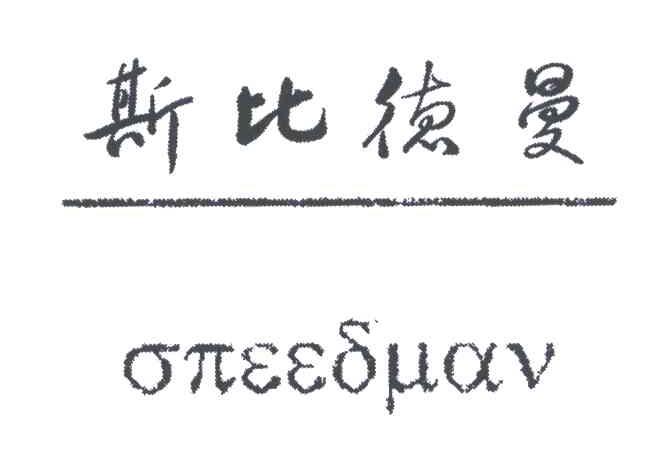 斯比德曼
σπεεδμαν